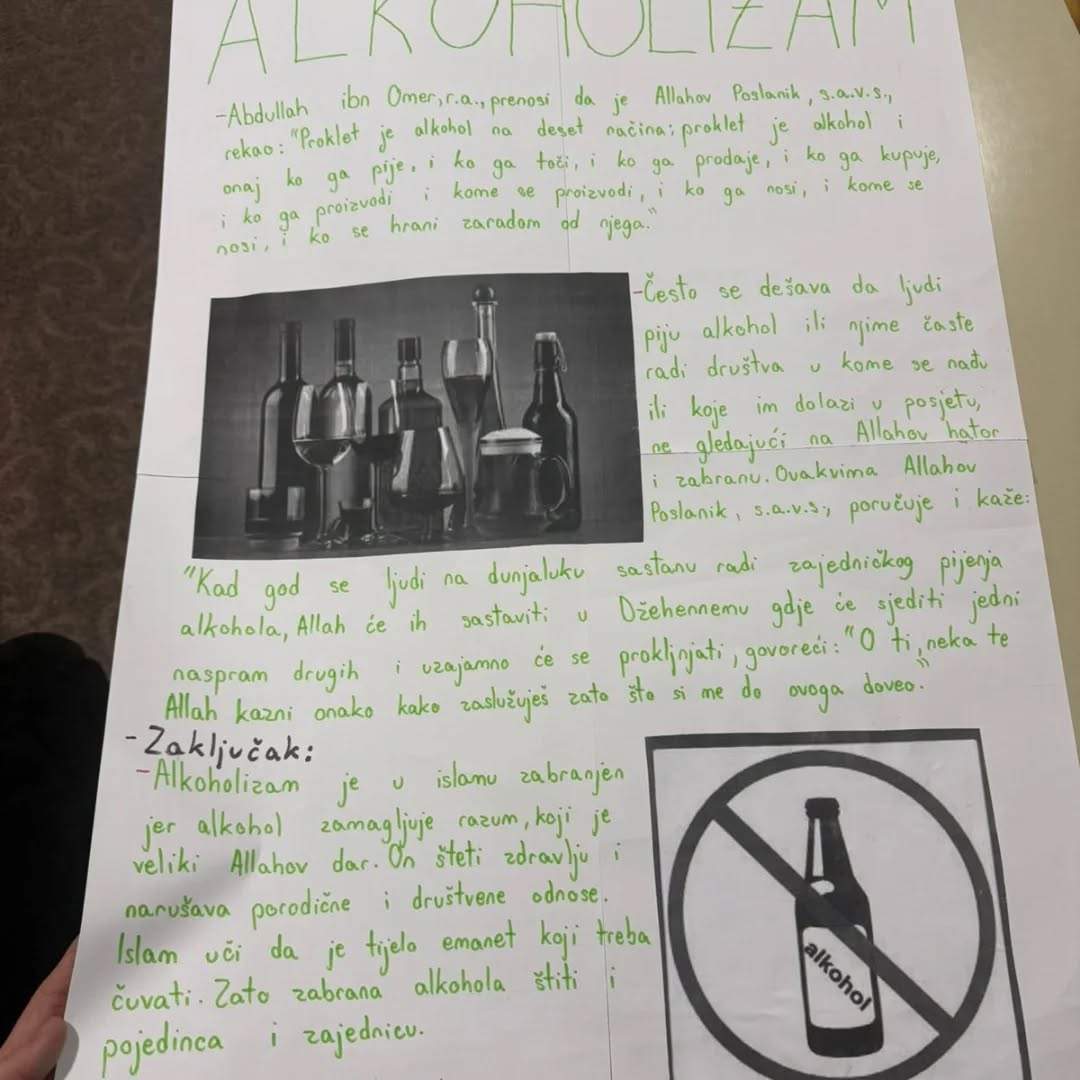 ALKOHOLIZAM
-Abdullah ibn Omer, r.a., prenosi da je Allahov Poslanik, s.a.v.s.,
rekao: "Proklet je alkohol na deset načina; proklet je alkohol i
onaj ko ga pije, i ko ga toči, i ko ga prodaje, i ko ga kupuje,
i ko ga proizvodi i kome se proizvodi, i ko ga nosi, i kome se
nosi, i ko se hrani zaradom od njega."
-Često se dešava da ljudi
piju alkohol ili njime časte
radi društva u kome se nađu
ili koje im dolazi u posjetu,
ne gledajući na Allahov hator
i zabranu. Ovakvima Allahov
Poslanik, s.a.v.s., poručuje i kaže:
"Kad god se ljudi na dunjaluku sastanu radi zajedničkog pijenja
alkohola, Allah će ih sastaviti u Džehennemu gdje će sjediti jedni
naspram drugih i uzajamno će se prokljnjati, govoreći: "O ti, neka te
Allah kazni onako kako zaslužuješ zato što si me do ovoga doveo."
-Zaključak:
-Alkoholizam je u islamu zabranjen
jer alkohol zamagljuje razum, koji je
veliki Allahov dar. On šteti zdravlju i
narušava porodične i društvene odnose.
Islam uči da je tijelo emanet koji treba
čuvati. Zato zabrana alkohola štiti i
pojedinca i zajednicu.
alkohol